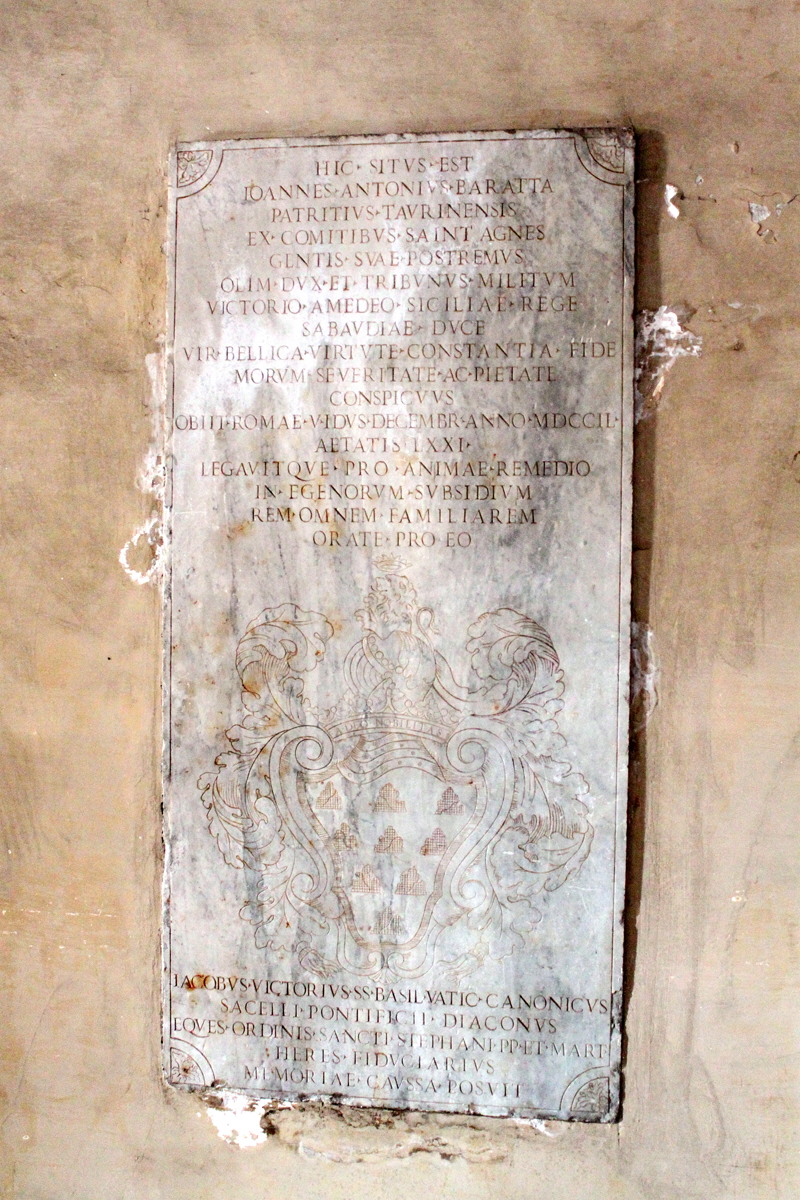 HIC · SITVS · EST
IOANNES · ANTONIVS · BARATTA
PATRITIVS · TAVRINENSIS
EX · COMITIBVS · SAINT AGNES
GENTIS · SVAE · POSTREMVS
OLIM · DVX · ET · TRIBVNVS · MILITVM
VICTORIO · AMEDEO · SICILIAE · REGE
SABAVDIAE · DVCE
VIR · BELLICA · VIRTVTE · CONSTANTIA · FIDE
MORVM · SEVERITATE · AC · PIETATE
CONSPICVVS
OBIIT · ROMAE · V · IDVS · DECEMBR · ANNO · MDCCIL ·
AETATIS · LXXI ·
LEGAVITQVE · PRO · ANIMAE · REMEDIO
IN · EGENORVM · SVBSIDIVM
REM · OMNEM · FAMILIAREM
ORATE · PRO · EO
IACOBVS · VICTORIVS · SS · BASIL · VATIC · CANONICVS
SACELLI · PONTIFICII · DIACONVS
EQVES · ORDINIS · SANCTI · STEPHANI · PP · ET · MART ·
HERES · FIDVCIARIVS
MEMORIAE · CAVSSA · POSVIT